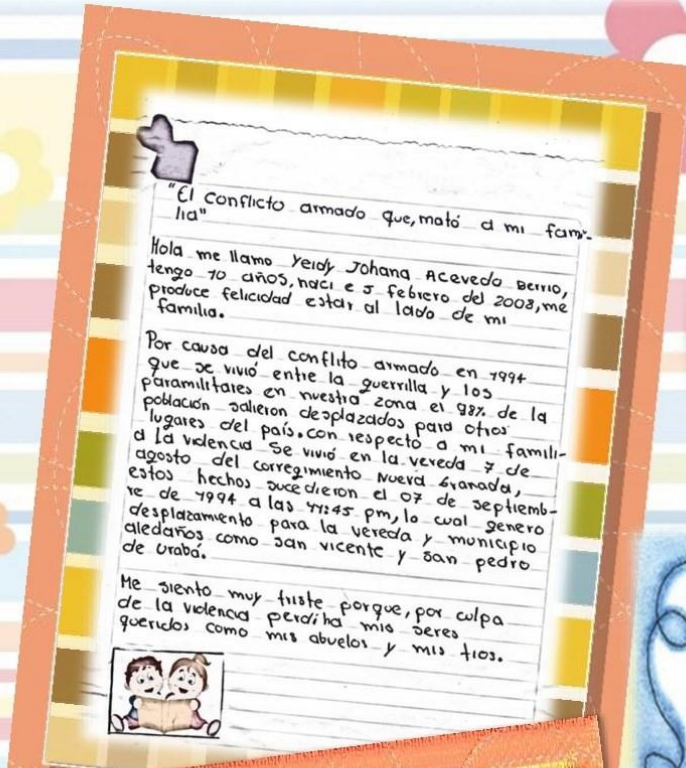 "El conflicto armado que, mató a mi fami-
lia"
Hola me llamo Yeidy Johana Acevedo Berrio,
tengo 10 años, naci e 5 febrero del 2008, me
produce felicidad estar al lado de mi
familia.
Por causa del conflito armado en 1994
que se vivió entre la guerrilla y los
paramilitares en nuestra zona el 98% de la
población salieron desplazados para otros
lugares del país. con respecto a mi famili-
a la violencia se vivió en la vereda 7 de
agosto del corregimiento Nueva Granada,
estos hechos sucedieron el 07 de septiemb-
re de 1994 a las 11:45 pm, lo cual genero
desplazamiento para la vereda y municipio
aledaños como san vicente y san pedro
de uraba.
Me siento muy triste porque, por culpa
de la violencia perdi ha mis seres
queridos como mis abuelos y mis tios.